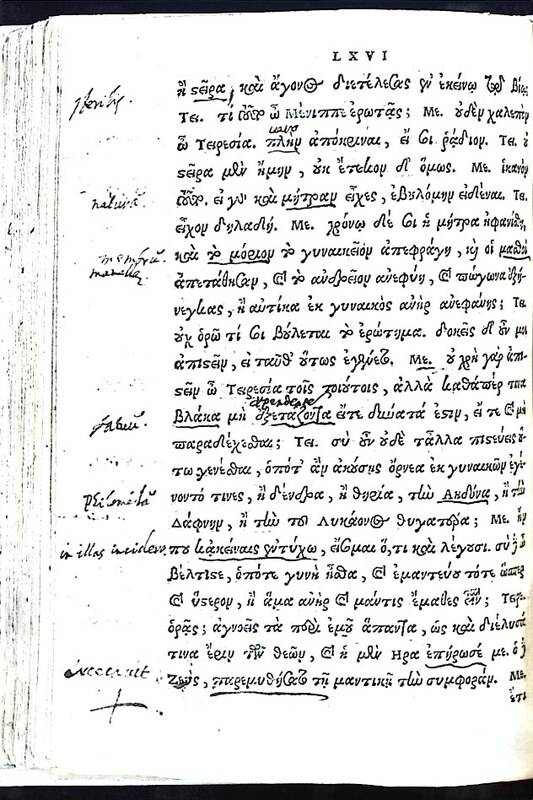 LXVI
ἢ στεῖρα, καὶ ἄγονος διετέλεσας ἐν ἐκείνῳ τῷ βίῳ;
sterilis.
Τει. τί τοῦτο ὦ Μένιππε ἐρωτᾷς; Με. οὐδὲν χαλεπὸν
ὦ Τειρεσία. πλὴν ἀπόκριναι, εἴ σοι ῥᾴδιον. Τει. οὐ
στεῖρα μὲν ἤμην, οὐκ ἔτεκον δ' ὅμως. Με. ἱκανὸν
τοῦτο. εἰ γὰρ καὶ μήτραν εἶχες, ἐβουλόμην εἰδέναι. Τει.
εἶχον δηλαδή. Με. χρόνῳ δέ σοι ἡ μήτρα ἠφανίσθη,
καὶ τὸ μόριον τὸ γυναικεῖον ἀπεφράγη, καὶ οἱ μασθοὶ
mamillae
ἀπετάθησαν, καὶ τὸ ἀνδρεῖον ἀνεφύη, καὶ πώγωνα ἐξή-
νεγκας, ἢ αὐτίκα ἐκ γυναικὸς ἀνὴρ ἀνεφάνης; Τει.
οὐχ ὁρῶ τί σοι βούλεται τὸ ἐρώτημα. δοκεῖς δ' οὖν μοι
ἀπιστεῖν, εἰ ταῦθ' οὕτως ἐγένετο. Με. οὐ χρὴ γὰρ ἀπι-
στεῖν ὦ Τειρεσία τοῖς τοιούτοις, ἀλλὰ καθάπερ τινα
βλᾶκα μὴ ἐξετάζοντα εἴτε δυνατά ἐστιν, εἴτε καὶ μὴ
fatuū.
παραδέχεσθαι; Τει. σὺ οὖν οὐδὲ τἆλλα πιστεύεις οὕ-
τω γενέσθαι, ὁπότ' ἂν ἀκούσῃς ὄρνεα ἐκ γυναικῶν ἐγέ-
νοντό τινες, ἢ δένδρα, ἢ θηρία, τὴν Ἀηδόνα, ἢ τὴν
Δάφνην, ἢ τὴν τοῦ Λυκάονος θυγατέρα; Με. ἤν
που κἀκείναις ἐντύχω, εἴσομαι ὅ,τι καὶ λέγουσι. σὺ δὲ ὦ
in illas incidero
βέλτιστε, ὁπότε γυνὴ ἦσθα, καὶ ἐμαντεύου τότε ὥσπερ
καὶ ὕστερον, ἢ ἅμα ἀνὴρ καὶ μάντις ἔμαθες εἶναι; Τει.
ὁρᾷς; ἀγνοεῖς τὰ περὶ ἐμοῦ ἅπαντα, ὡς καὶ διέλυσά
τινα ἔριν τῶν θεῶν, καὶ ἡ μὲν Ηρα ἐπήρωσέ με. ὁ δὲ
Ζεὺς, παρεμυθήσατο τῇ μαντικῇ τὴν συμφοράν. Με.
ἔτι